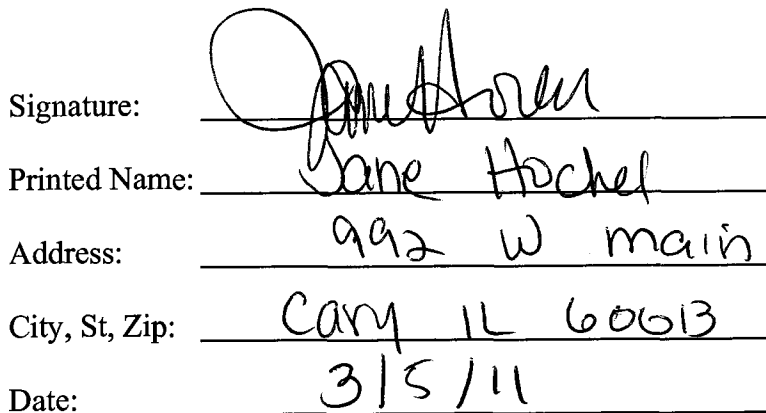 Signature:
Printed Name: Jane Hochel
Address: 992 W main
City, St, Zip: Cary IL 60013
Date: 3/5/11